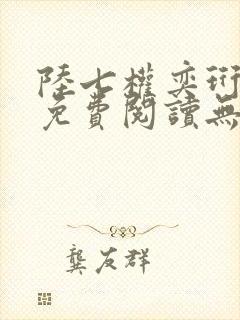 陸七權奕珩
免費閱讀無
龔友群